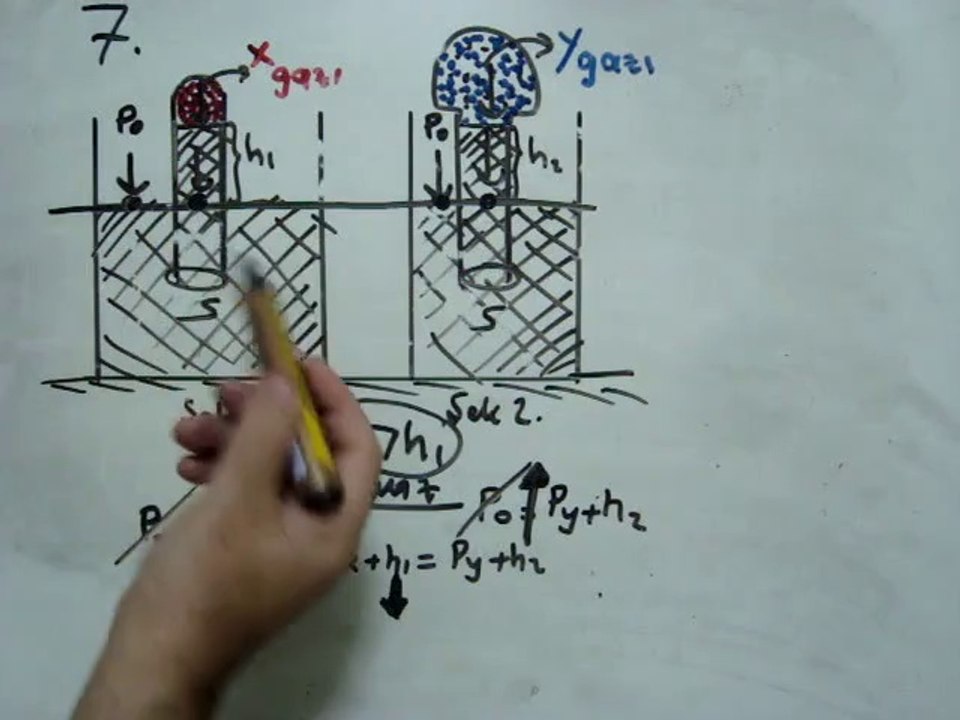 7.
X gazı
Y gazı
P₀
h₁
P₀
h₂
S
S
Şek 2.
h₁
P₀ = Py + h₂
+ h₁ = Py + h₂